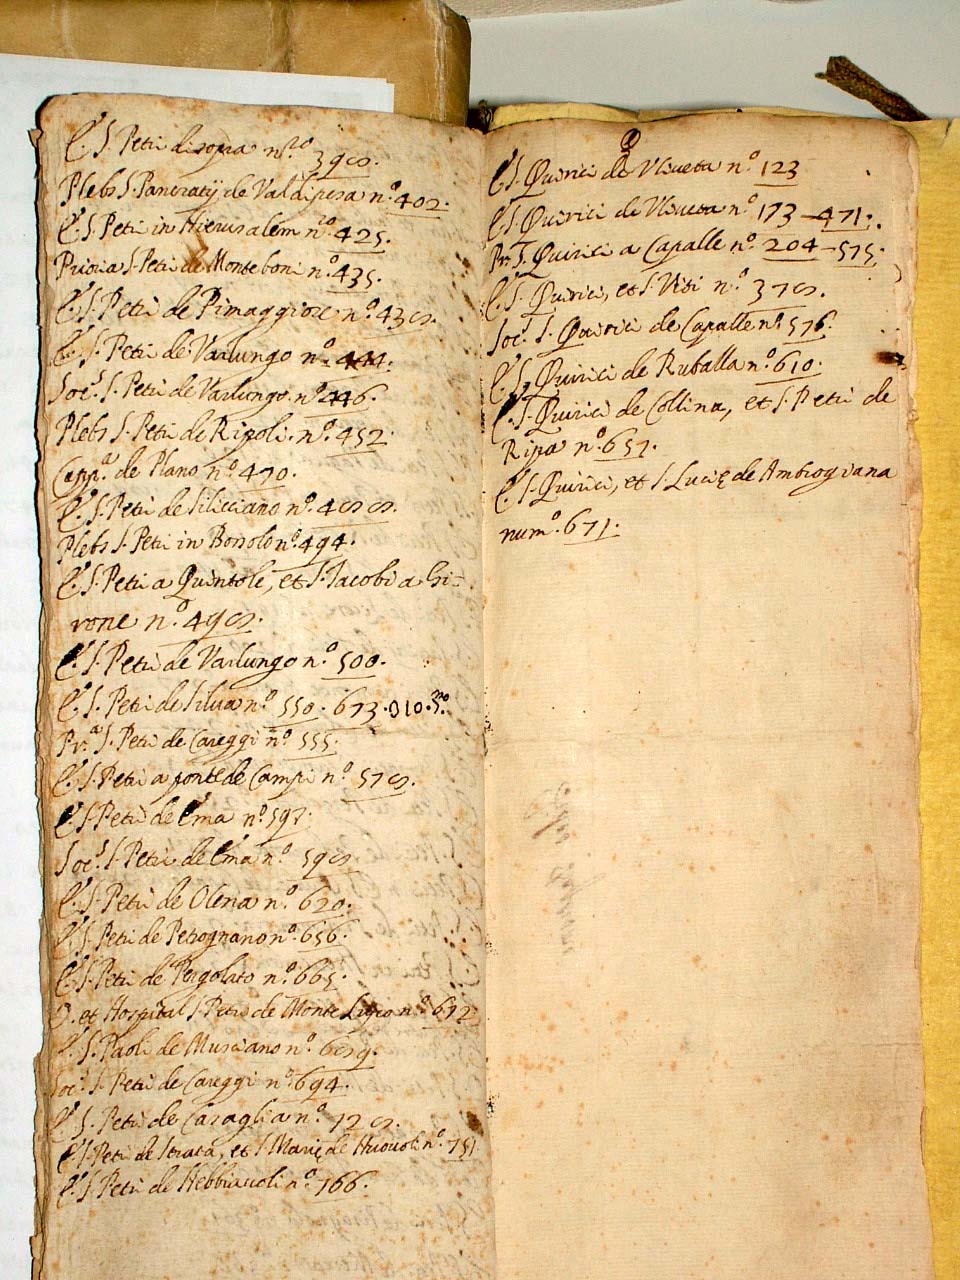 E. S. Petri di sopra n.ro 398.
Plebs S. Pancratij de Valdipesa n.o 402.
E. S. Petri in Hierusalem n.ro 425.
Prioria S. Petri de Monteboni n.o 435.
E. S. Petri de Pimaggiore n.o 438.
E. S. Petri de Varlungo n.o 444.
Soc.s S. Petri de Varlungo n.o 446.
Plebs S. Petri de Ripoli. n.o 452.
Capp.a de Plano n.o 470.
E. S. Petri de Siliciano n.o 488.
Plebs S. Petri in Bossolo n.o 494.
E. S. Petri a Quintole, et S. Jacobi a Gi-
rone n.o 498.
E. S. Petri de Varlungo n.o 500.
E. S. Petri de Silva n.o 550. 673.
Pr.a S. Petri de Careggi n.o 555.
E. S. Petri a ponte de Campi n.o 578.
E. S. Petri de Ema n.o 597.
Soc.s S. Petri de Ema n.o 598
E. S. Petri de Olena n.o 620.
E. S. Petri de Petrognano n.o 656.
E. S. Petri de Pergolato n.o 665.
et Hospital S. Petri de Monte n.o 672
E. S. Paoli de Musciano n.o 689.
Soc.s S. Petri de Careggi n.o 694.
E. S. Petri de Casaglia n.o 728.
E. S. Petri de Strata, et S. Marię de n.o 751
E. S. Petri de Nebbiavoli n.o 766.
Q
E. S. Quirici de Vliveta n.o 123
E. S. Quirici de Vliveta n.o 173-471.
Pr. S. Quirici a Capalle n.o 204-575.
E. S. Quirici, et S. Viti n.o 378.
Soc.s S. Quirici de Capalle n.o 576.
E. S. Quirici de Ruballa n.o 610.
E. S. Quirici de Collina, et S. Petri de
Ripa n.o 657.
E. S. Quirici, et S. Lucię de Ambrogiana
num.o 671.